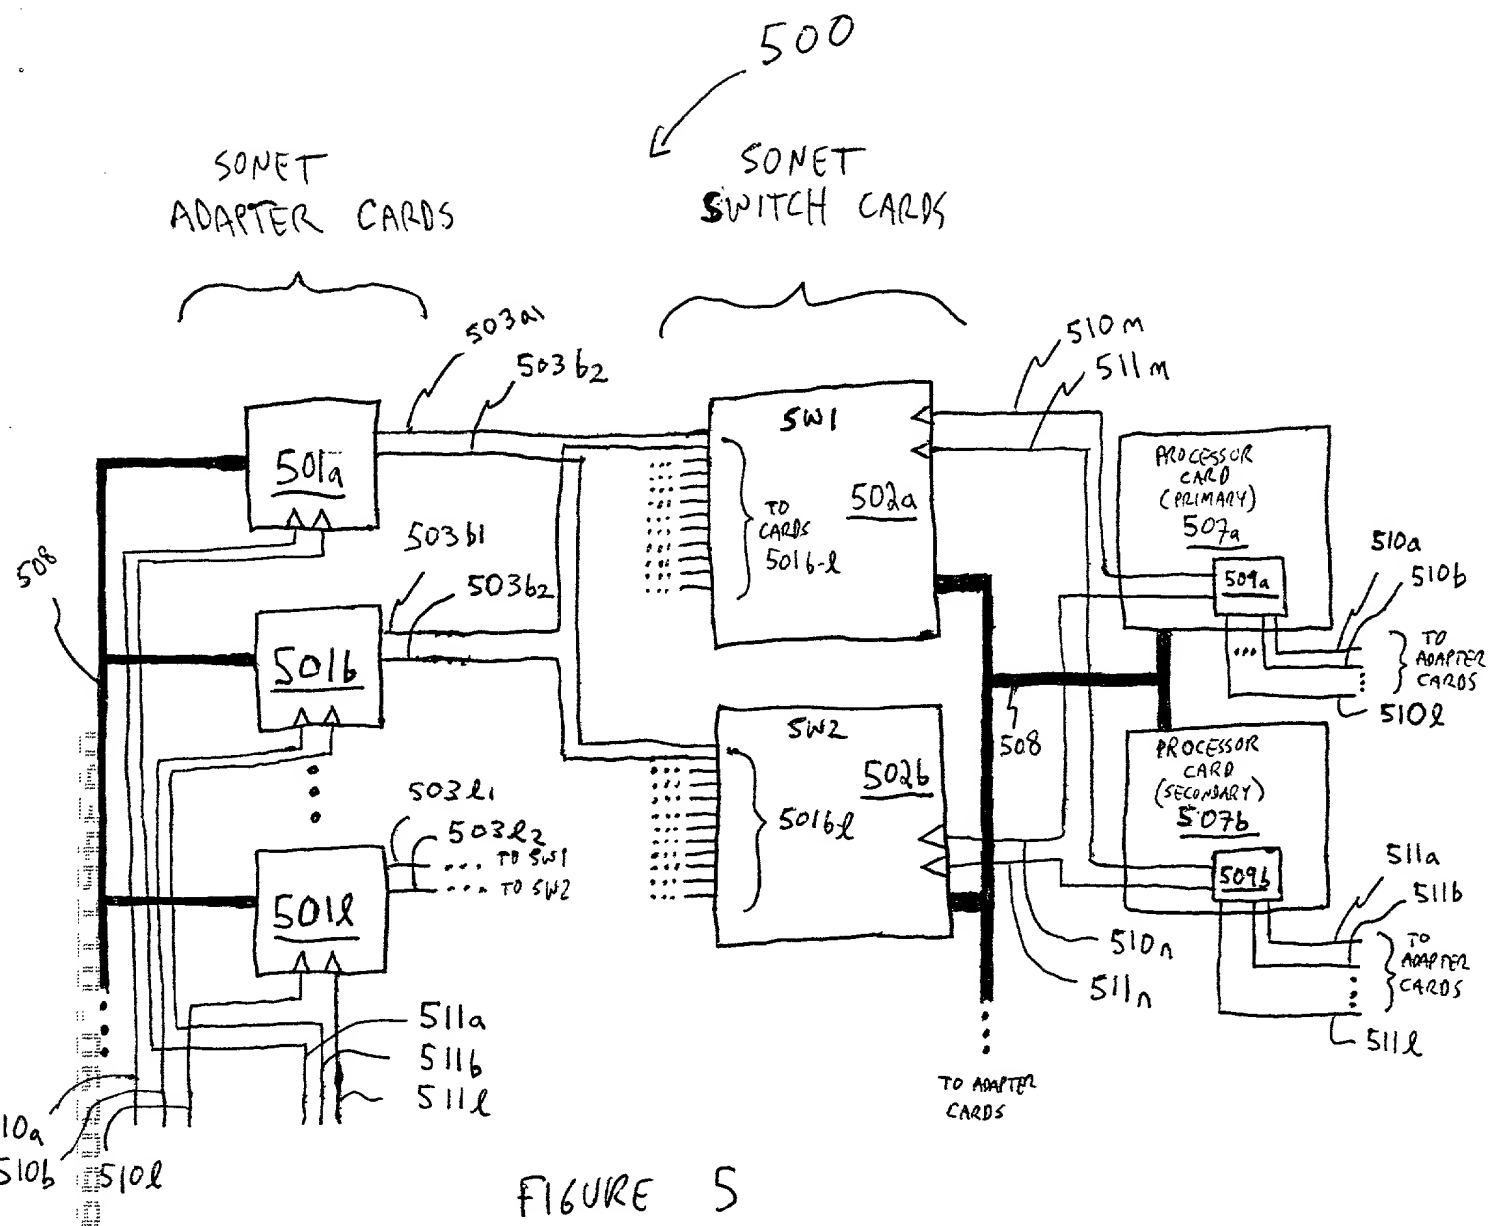 500
SONET
ADAPTER CARDS
SONET
SWITCH CARDS
503a1
503b2
510m
511m
501a
SW1
502a
TO
CARDS
501b-l
PROCESSOR
CARD
(PRIMARY)
507a
509a
510a
510b
TO
ADAPTER
CARDS
510l
508
503b1
503b2
501b
508
SW2
502b
501b-l
PROCESSOR
CARD
(SECONDARY)
507b
509b
511a
511b
TO
ADAPTER
CARDS
511l
503l1
503l2
TO SW1
TO SW2
501l
510n
511n
511a
511b
511l
TO ADAPTER
CARDS
10a
510b
510l
FIGURE 5